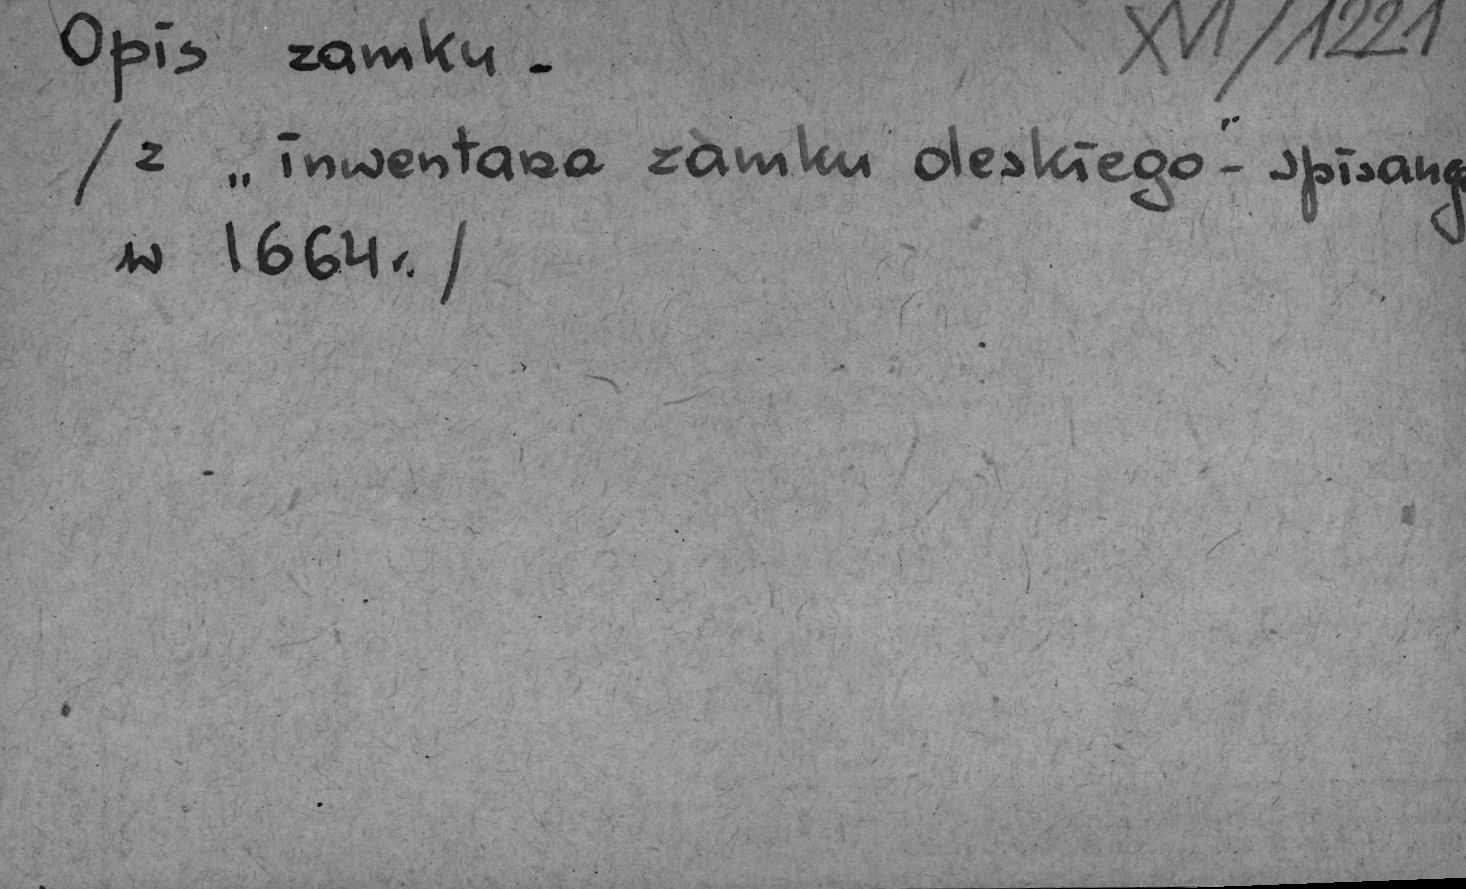 Opis zamku - XVI/1221
/z „inwentarza zamku oleskiego” - spisang
w 1664r./